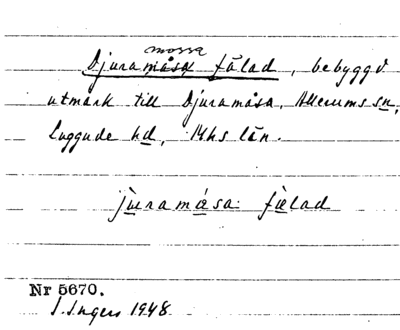 mossa
Djuramåsa fälad, bebyggd
utmark till Djuramåsa, Allerums sn,
Luggude hd, Mhs län.
jùuramása: fèlad
Nr 5670.
I. Ingers 1948